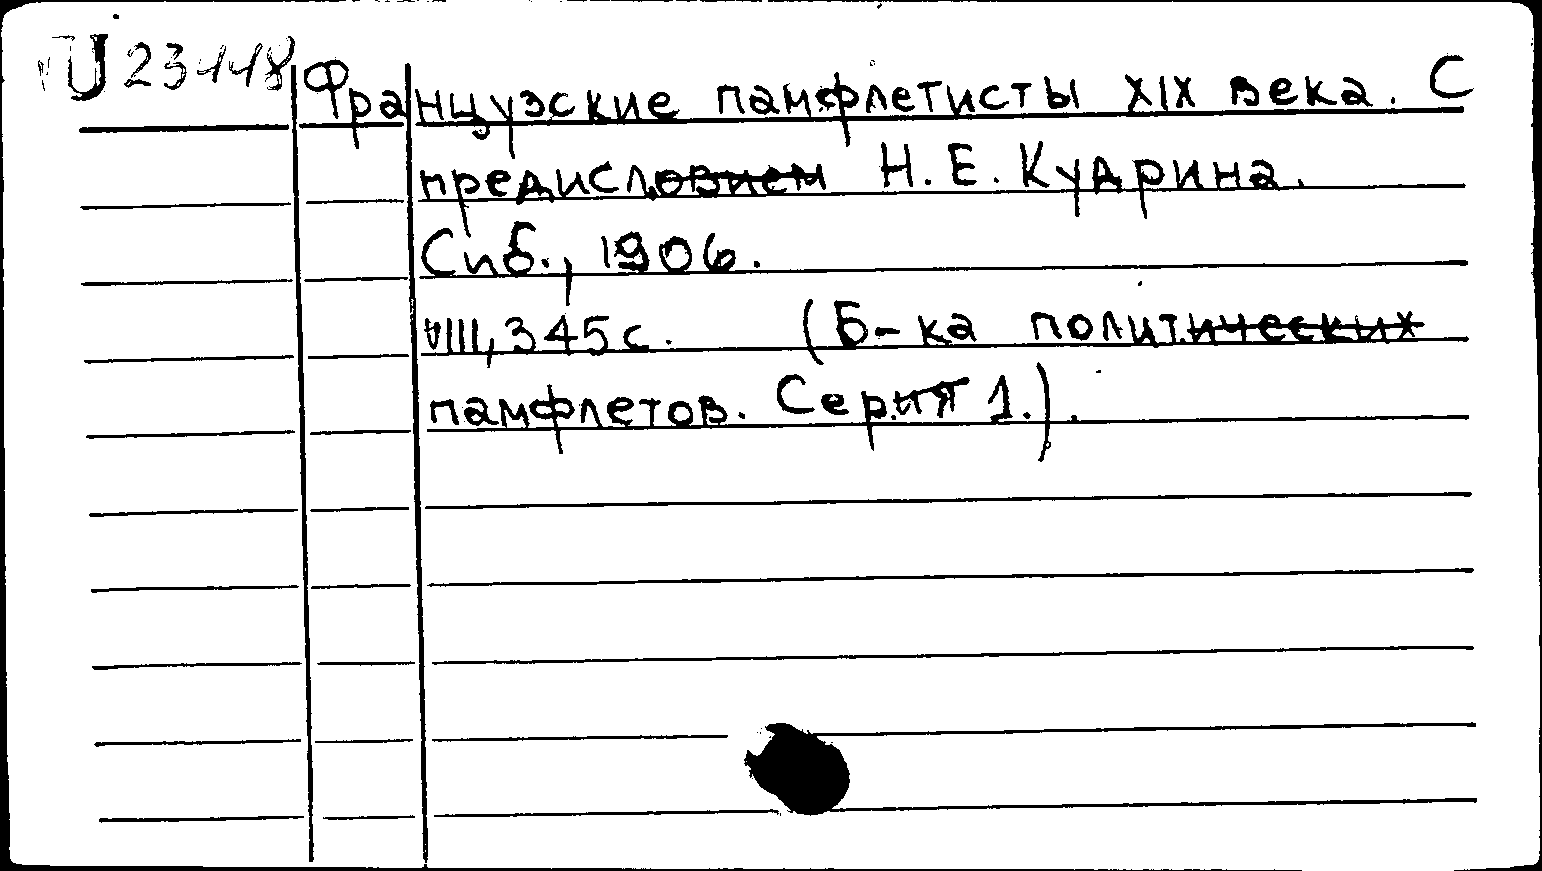 U 23448
Французские памфлетисты XIX века. С
предисловием Н. Е. Кудрина.
Спб., 1906.
VIII, 345 с. (Б-ка политических
памфлетов. Серия 1.).